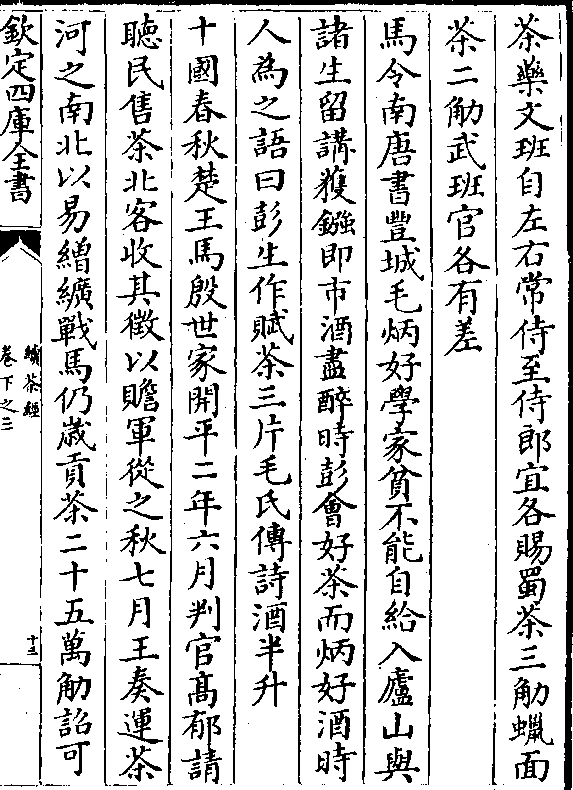 茶藥文班自左右常侍至侍郎宜各賜蜀茶三觔蠟面
茶二觔武班官各有差
馬令南唐書豐城毛炳好學家貧不能自給入廬山與
諸生留講獲鏹即市酒盡醉時彭會好茶而炳好酒時
人為之語曰彭生作賦茶三片毛氏傳詩酒半升
十國春秋楚王馬殷世家開平二年六月判官髙郁請
聽民售茶北客收其徵以贍軍從之秋七月王奏運茶
河之南北以易繒纊戰馬仍歳貢茶二十五萬觔詔可
欽定四庫全書
續茶經
卷下之三
十三